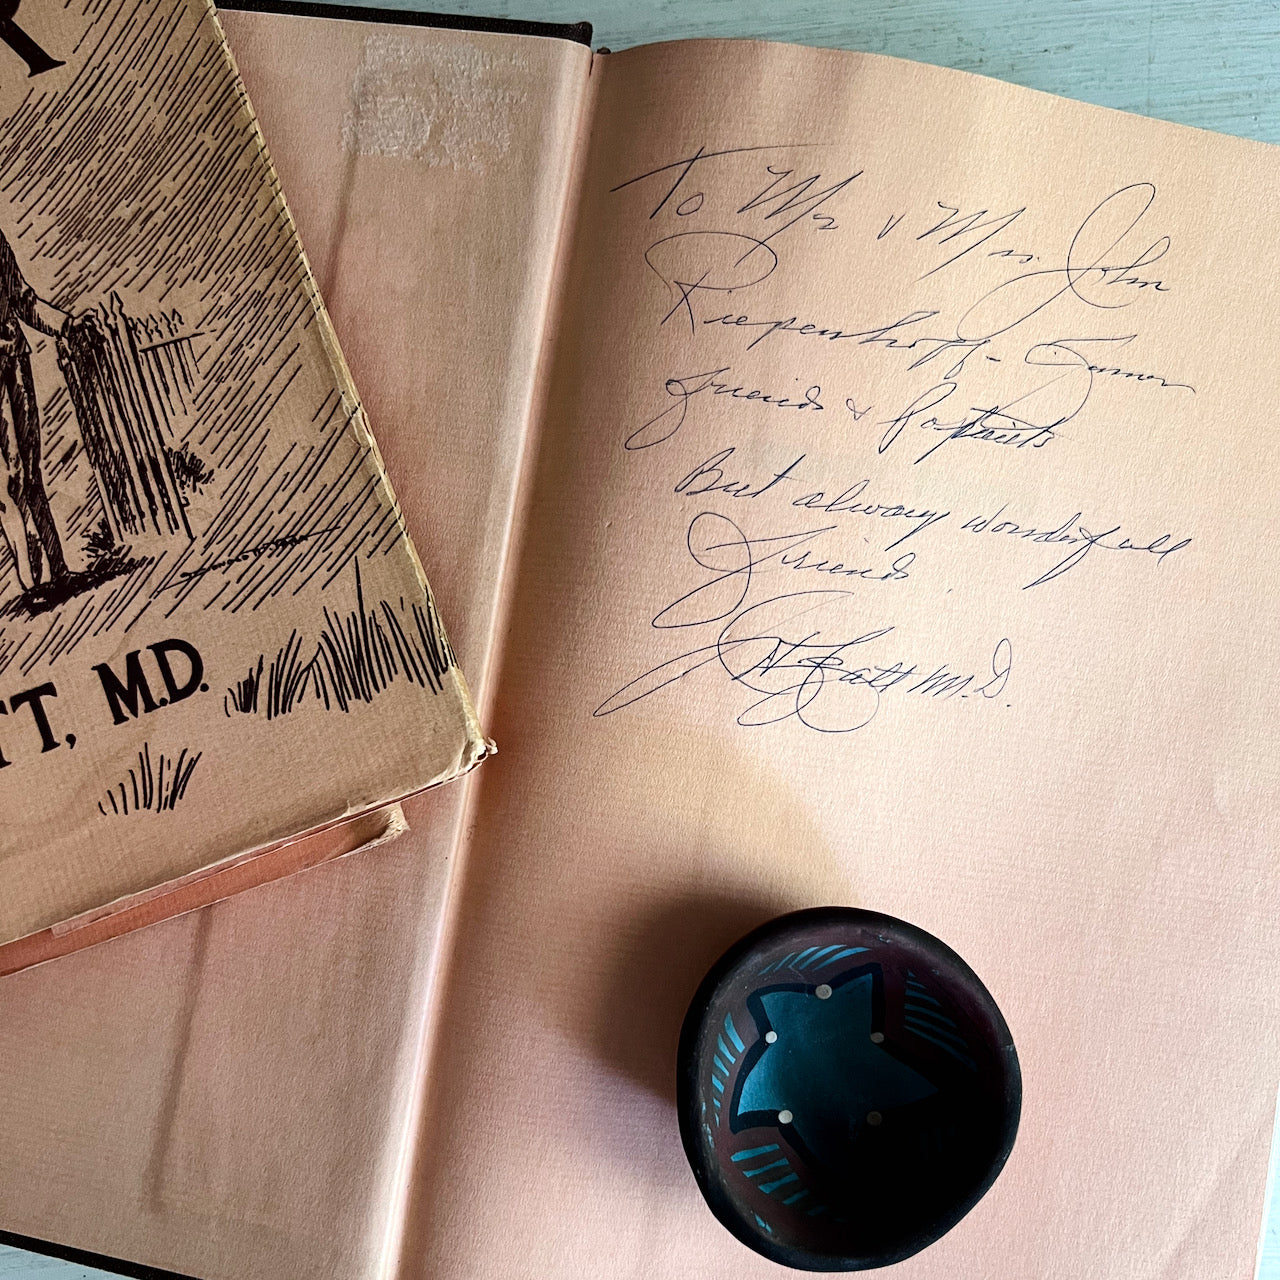 R
TT, M.D.
To Mr & Mrs. John
Riepenhoff - Former
friends & Patients
But always wonderfull
friends
M.D.